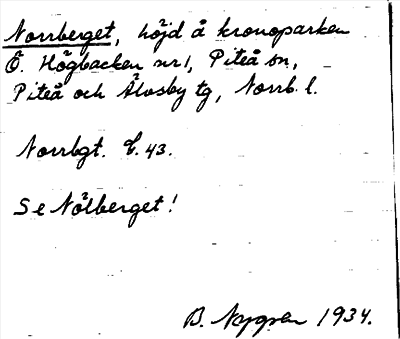 Norrberget, höjd å kronoparken
Ö. Högbacken nr 1, Piteå sn,
Piteå och Älvsby tg, Norrb. l.
Norrbgt. C. 43.
Se Nölberget!
B. Nygren 1934.